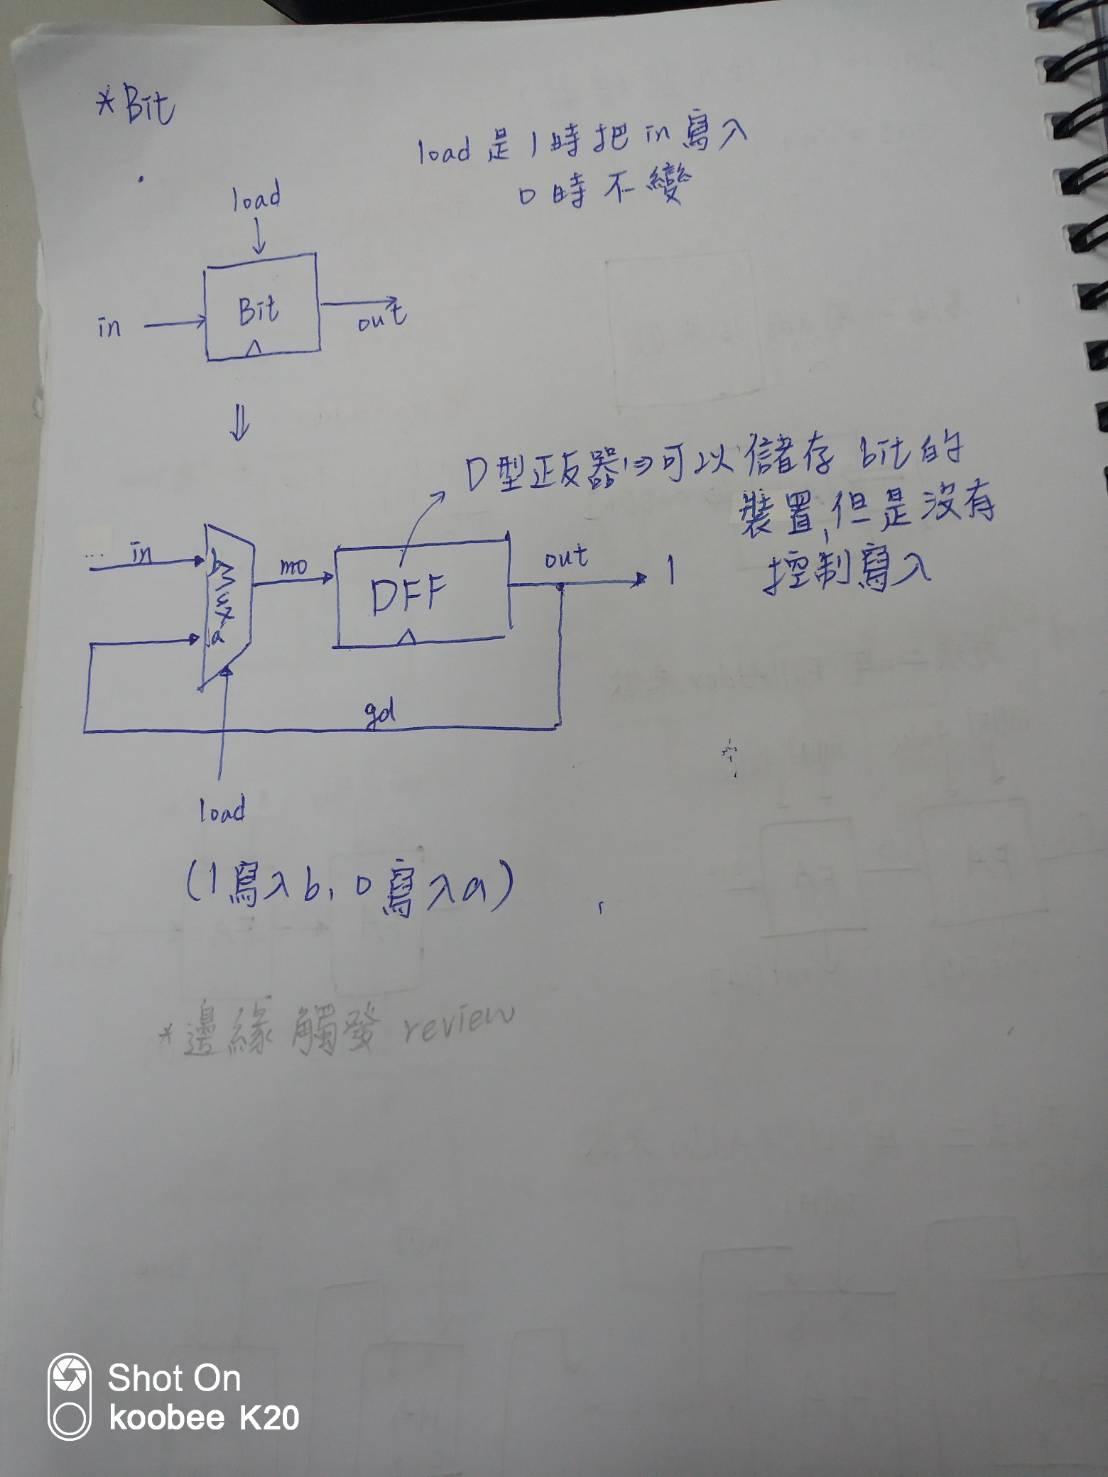 *Bit
load是1時把in寫入
0時不變
load
in
Bit
out
⇓
D型正反器⇒可以儲存bit的
裝置,但是沒有
控制寫入
... in
b Mux a
mo
DFF
out
1
gd
load
(1寫入b, 0寫入a)
*邊緣觸發 review
Shot On
koobee K20